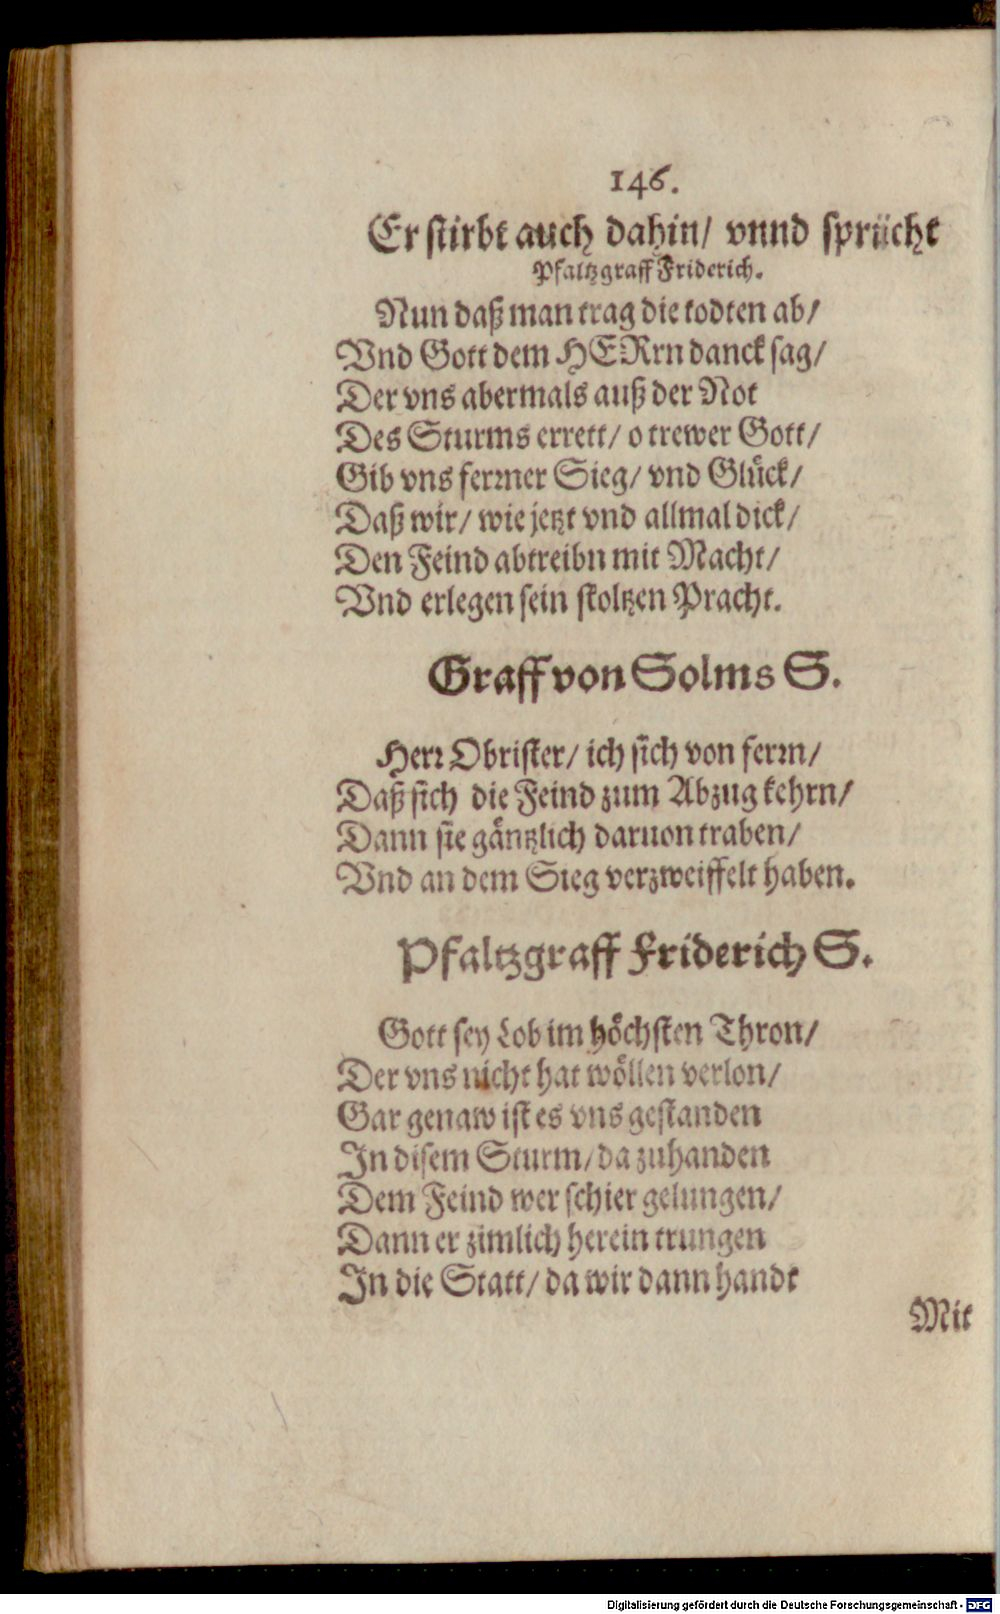 146.
Er stirbt auch dahin/ vnnd sprücht
Pfaltzgraff Friderich.
Nun daß man trag die todten ab/
Vnd Gott dem HERrn danck sag/
Der vns abermals auß der Not
Des Sturms errett/ o trewer Gott/
Gib vns ferrner Sieg/ vnd Glück/
Daß wir/ wie jetzt vnd allmal dick/
Den Feind abtreibn mit Macht/
Vnd erlegen sein stoltzen Pracht.
Graff von Solms S.
Herr Obrister/ ich sich von ferrn/
Daß sich die Feind zum Abzug kehrn/
Dann sie gäntzlich daruon traben/
Vnd an dem Sieg verzweiffelt haben.
Pfaltzgraff Friderich S.
Gott sey Lob im höchsten Thron/
Der vns nicht hat wöllen verlon/
Gar genaw ist es vns gestanden
In disem Sturm/ da zuhanden
Dem Feind wer schier gelungen/
Dann er zimlich herein trungen
In die Statt/ da wir dann handt
Mit
Digitalisierung gefördert durch die Deutsche Forschungsgemeinschaft - DFG